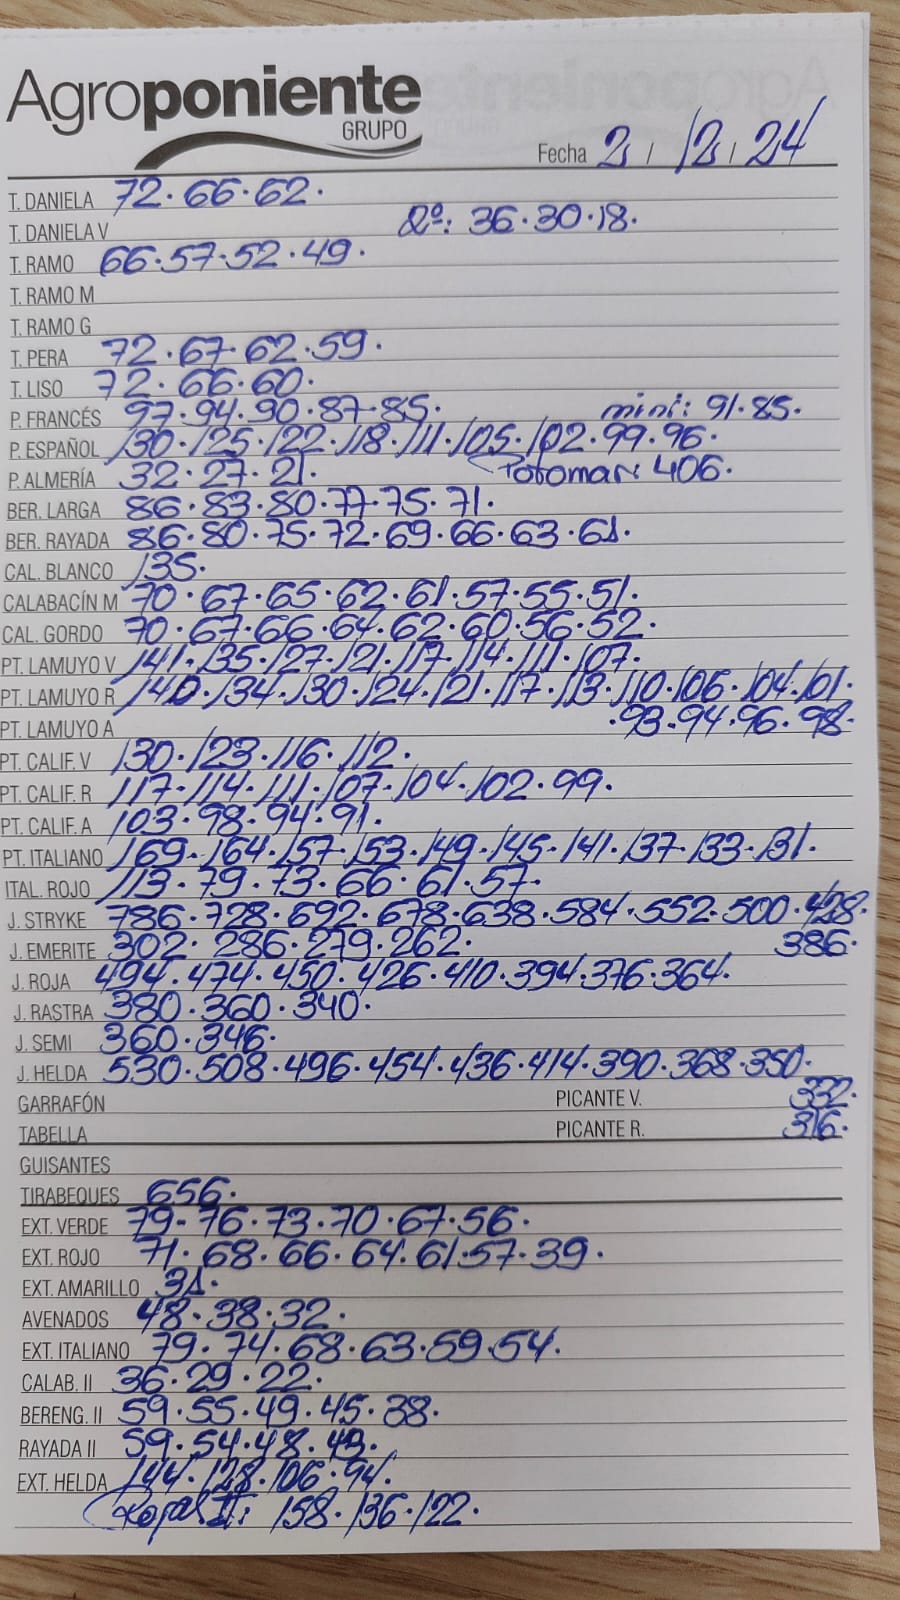 Agroponiente
GRUPO
Fecha 2 / 12 / 24
T. DANIELA 72.66.62.
T. DANIELA V 2º: 36.30.18.
T. RAMO 66.57.52.49.
T. RAMO M
T. RAMO G
T. PERA 72.67.62.59.
T. LISO 72.66.60.
P. FRANCÉS 97.94.90.87.85. mini: 91.85.
P. ESPAÑOL 130.125.122.118.111.105.102.99.96.
P. ALMERÍA 32.27.21. Potomar: 406.
BER. LARGA 86.83.80.77.75.71.
BER. RAYADA 86.80.75.72.69.66.63.61.
CAL. BLANCO 135.
CALABACÍN M 70.67.65.62.61.57.55.51.
CAL. GORDO 70.67.66.64.62.60.56.52.
PT. LAMUYO V 141.135.127.121.117.114.111.107.
PT. LAMUYO R 140.134.130.124.121.117.113.110.106.104.101.
PT. LAMUYO A .93.94.96.98.
PT. CALIF. V 130.123.116.112.
PT. CALIF. R 117.114.111.107.104.102.99.
PT. CALIF. A 103.98.94.91.
PT. ITALIANO 169.164.157.153.149.145.141.137.133.131.
ITAL. ROJO 113.79.73.66.61.57.
J. STRYKE 786.728.692.678.638.584.552.500.428.
J. EMERITE 302.286.279.262. 386.
J. ROJA 494.474.450.426.410.394.376.364.
J. RASTRA 380.360.340.
J. SEMI 360.346.
J. HELDA 530.508.496.454.436.414.390.368.350.
GARRAFÓN PICANTE V. 332.
TABELLA PICANTE R. 316.
GUISANTES
TIRABEQUES 656.
EXT. VERDE 79-76.73.70.67.56.
EXT. ROJO 71.68.66.64.61.57.39.
EXT. AMARILLO 31.
AVENADOS 48.38.32.
EXT. ITALIANO 79.74.68.63.59.54.
CALAB. II 36.29.22.
BERENG. II 59.55.49.45.38.
RAYADA II 59.54.48.43.
EXT. HELDA 144.128.106.94.
Roja II: 158.136.122.